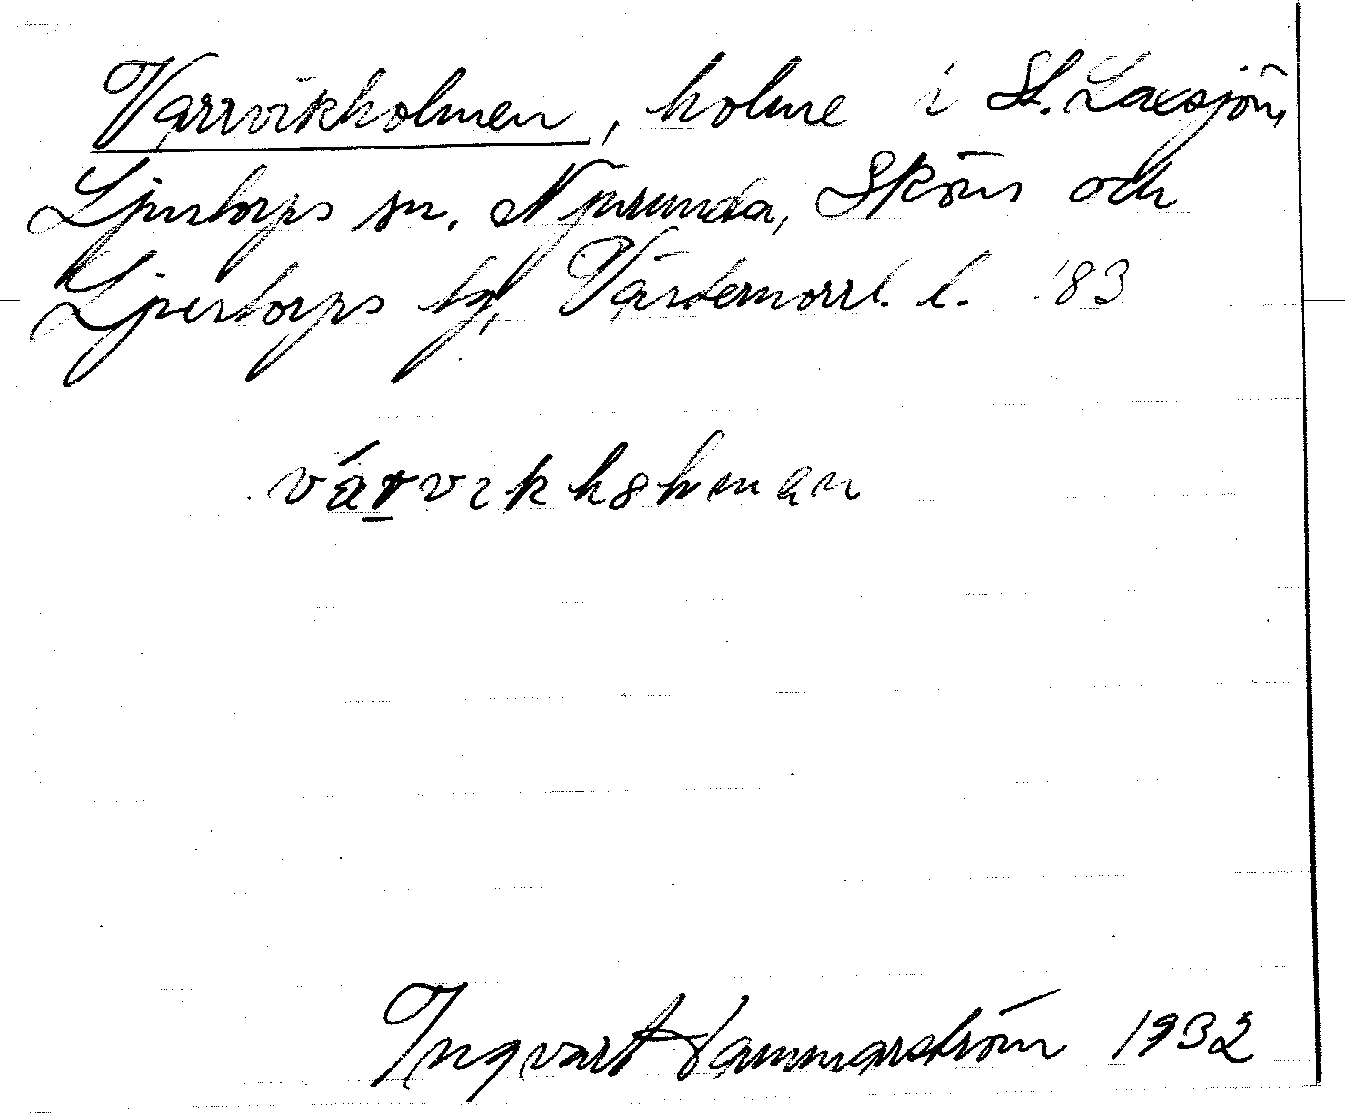 Varrvikholmen, holme i St. Laxsjön,
Ljustorps sn. Njurunda, Sköns och
Ljustorps tg, Västernorrl. l. '83
várvikhȣlman
Ingvart Hammarström 1932